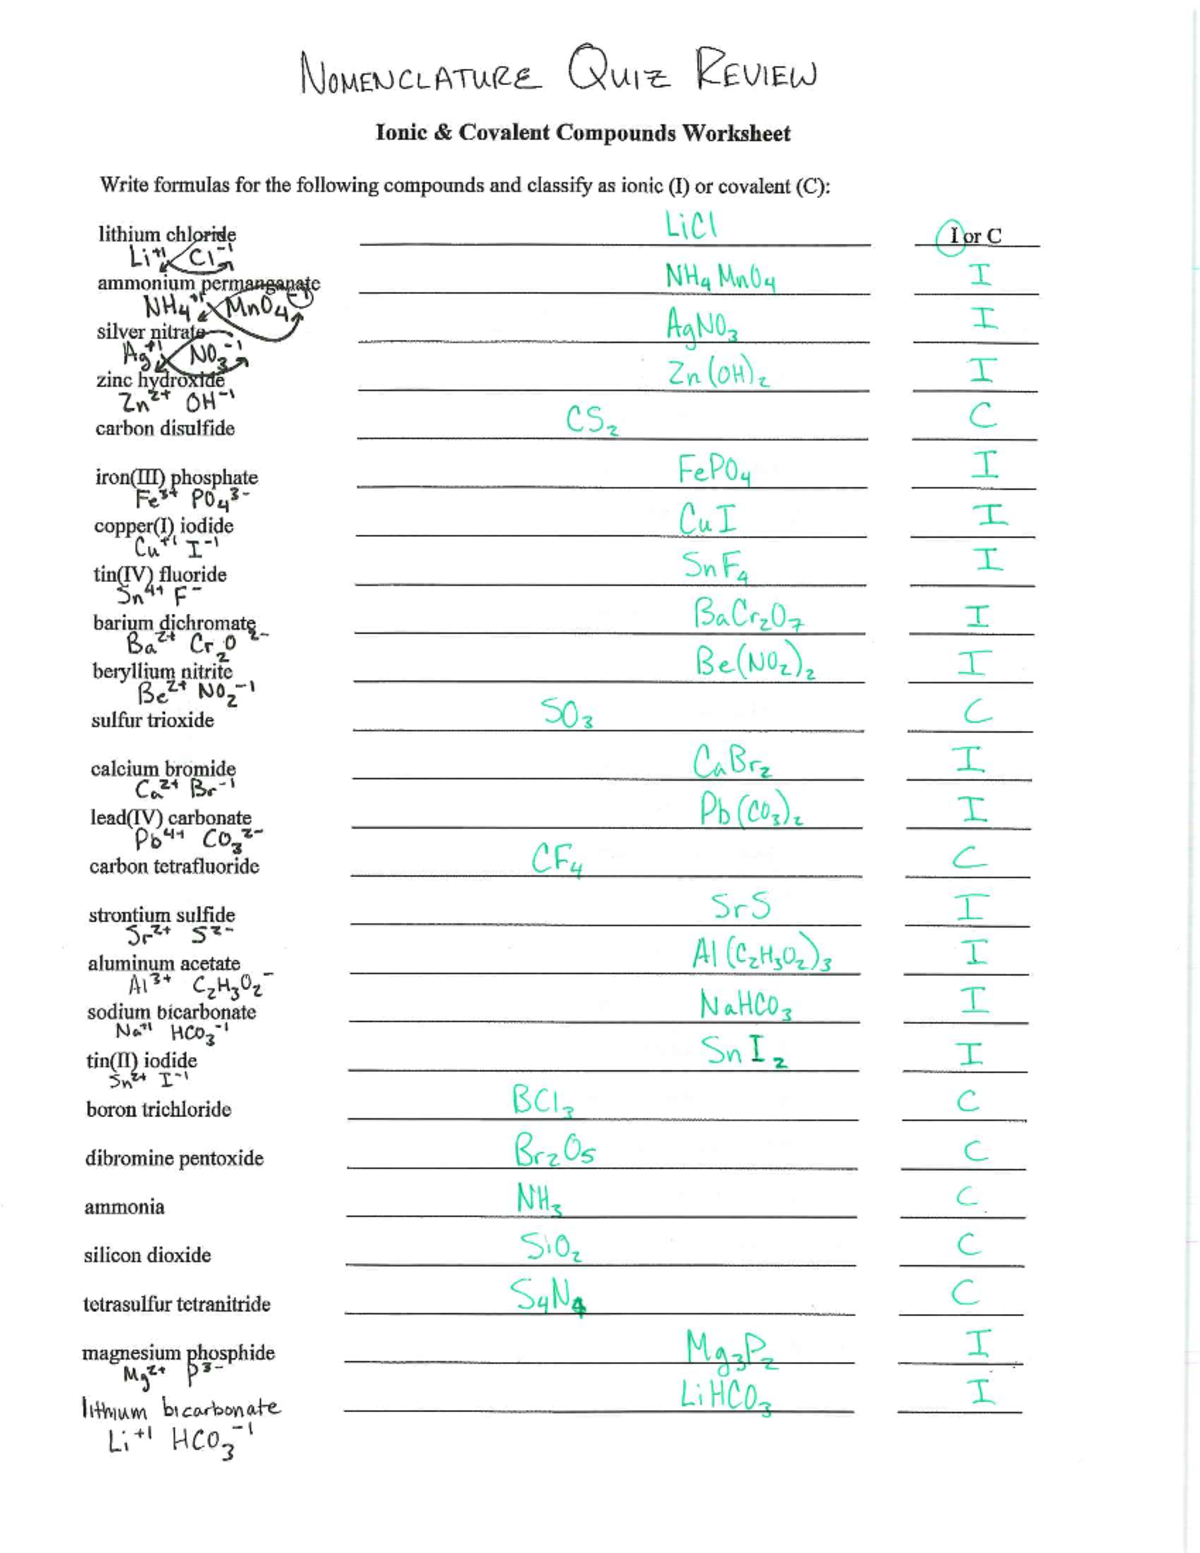 NOMENCLATURE QUIZ REVIEW
Ionic & Covalent Compounds Worksheet
Write formulas for the following compounds and classify as ionic (I) or covalent (C):
lithium chloride LiCl I or C
Li⁺¹ Cl⁻¹
ammonium permanganate NH₄MnO₄ I
NH₄⁺¹ MnO₄⁻¹
silver nitrate AgNO₃ I
Ag⁺¹ NO₃⁻¹
zinc hydroxide Zn(OH)₂ I
Zn²⁺ OH⁻¹
carbon disulfide CS₂ C
iron(III) phosphate FePO₄ I
Fe³⁺ PO₄³⁻
copper(I) iodide CuI I
Cu⁺¹ I⁻¹
tin(IV) fluoride SnF₄ I
Sn⁴⁺ F⁻
barium dichromate BaCr₂O₇ I
Ba²⁺ Cr₂O²⁻
beryllium nitrite Be(NO₂)₂ I
Be²⁺ NO₂⁻¹
sulfur trioxide SO₃ C
calcium bromide CaBr₂ I
Ca²⁺ Br⁻¹
lead(IV) carbonate Pb(CO₃)₂ I
Pb⁴⁺ CO₃²⁻
carbon tetrafluoride CF₄ C
strontium sulfide SrS I
Sr²⁺ S²⁻
aluminum acetate Al(C₂H₃O₂)₃ I
Al³⁺ C₂H₃O₂⁻
sodium bicarbonate NaHCO₃ I
Na⁺¹ HCO₃⁻¹
tin(II) iodide SnI₂ I
Sn²⁺ I⁻¹
boron trichloride BCl₃ C
dibromine pentoxide Br₂O₅ C
ammonia NH₃ C
silicon dioxide SiO₂ C
tetrasulfur tetranitride S₄N₄ C
magnesium phosphide Mg₃P₂ I
Mg²⁺ P³⁻
lithium bicarbonate LiHCO₃ I
Li⁺¹ HCO₃⁻¹